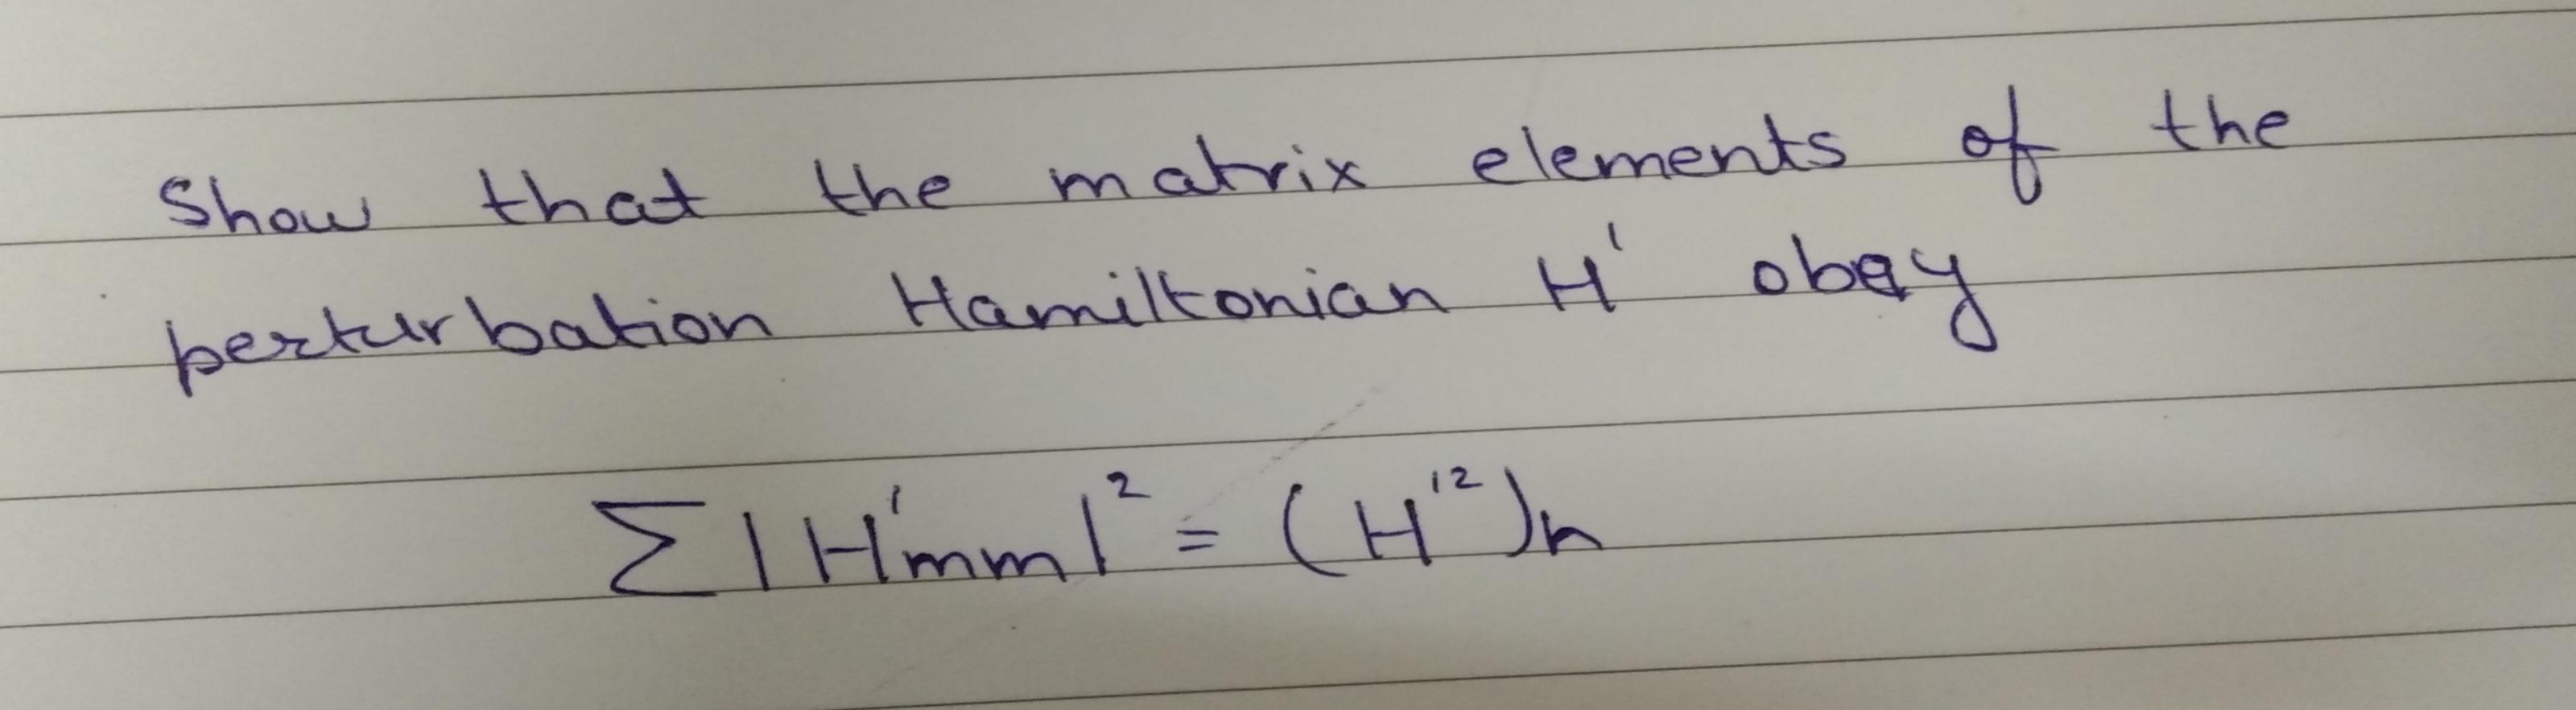 Show that the matrix elements of the
perturbation Hamiltonian H' obey
∑|H'mm|² = (H'²)n